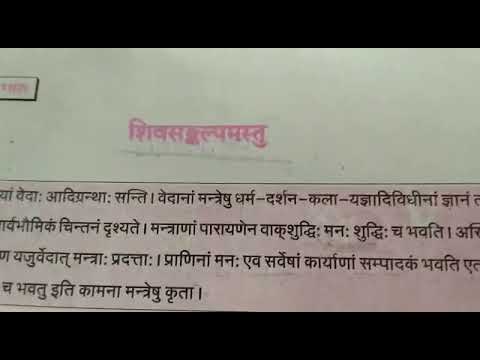 पाठः
शिवसङ्कल्पमस्तु
यां वेदाः आदिग्रन्थाः सन्ति। वेदानां मन्त्रेषु धर्म-दर्शन-कला-यज्ञादिविधीनां ज्ञानं
ार्वभौमिकं चिन्तनं दृश्यते। मन्त्राणां पारायणेन वाक्शुद्धिः मनः शुद्धिः च भवति।
ण यजुर्वेदात् मन्त्राः प्रदत्ताः। प्राणिनां मनः एव सर्वेषां कार्याणां सम्पादकं भवति
च भवतु इति कामना मन्त्रेषु कृता।